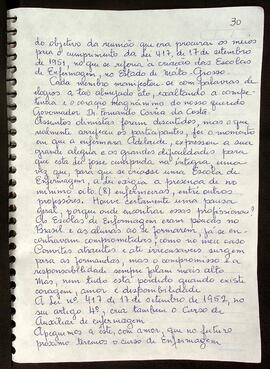 30
do objetivo da reunião que era procurar os meios
para o cumprimento da lei 417, de 17 de setembro
de 1951, no que se refere a criação das Escolas
de Enfermagem, no Estado de Mato-Grosso.
Cada membro manifestou-se com palavras de
elogios a tão almejado ato, exaltando a compe-
tência e o coração magnânimo do nosso querido
Governador Dr. Fernando Corrêa da Costa.
Assuntos otimistas foram discutidos, mas o que
realmente os participantes, foi o momento
em que a enfermeira Adelaide, expressou a sua
grande alegria e as grandes dificuldades para
que esta lei fose cumprida na íntegra, uma
vez que, para que se criasse uma Escola de
Enfermagem, a lei exigia a presença de no
mínimo oito (8) enfermeiras, entre outros
professores. Houve certamente uma pausa
geral, porque onde encontrar essas professoras?
As Escolas de Enfermagem eram poucas no
Brasil e as alunas ao se formarem, já se en-
contravam comprometidas, como no meu caso
Convites atraentes e até irrecusáveis surgiam
para as formandas, mas o compromisso e a
responsabilidade sempre falam mais alto
Mas, nem tudo está perdido quando existe
coragem, amor e disponibilidade
A Lei nº 417 de 17 de setembro de 1952, no
seu artigo 4º, cria também o Curso de
Auxiliar de enfermagem
Apeguemos a êste, com amor, que no futuro
próximo teremos o curso de Enfermagem